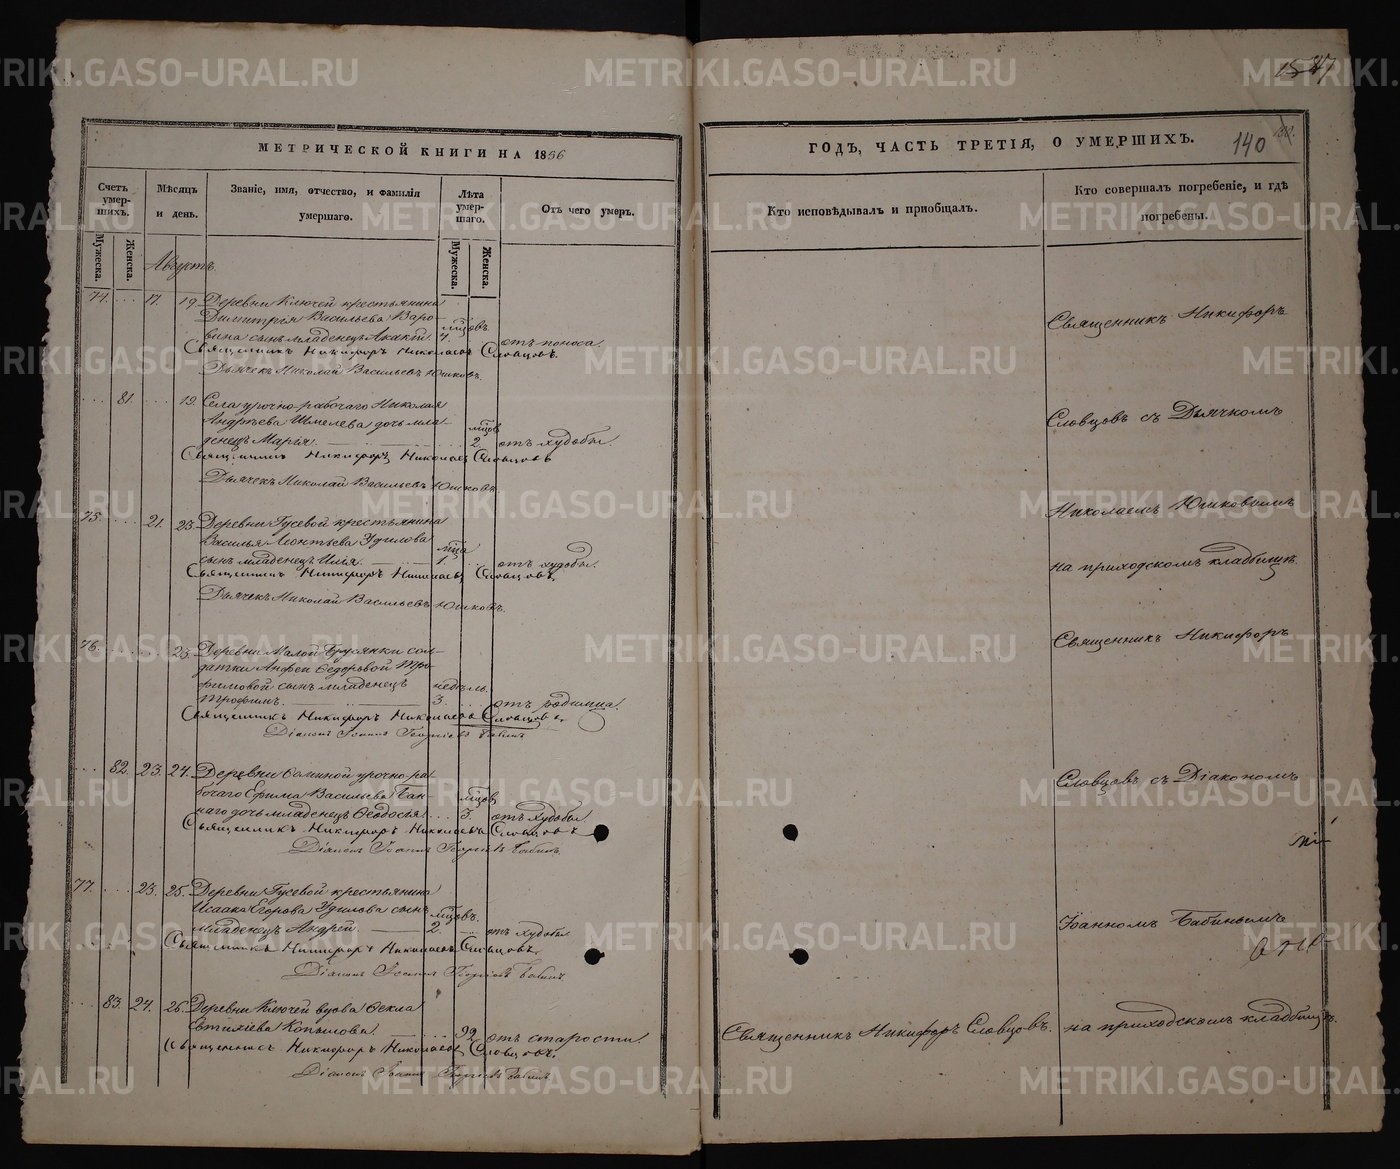 METRIKI.GASO-URAL.RU
1847
МЕТРИЧЕСКОЙ КНИГИ НА 1856
ГОДЪ, ЧАСТЬ ТРЕТІЯ, О УМЕРШИХЪ.
140
Счетъ умер-шихъ.
Мужеска.
Женска.
Мѣсяцъ и день.
Званіе, имя, отчество, и фамилія умершаго.
Лѣта умер-шаго.
Мужеска.
Женска.
Отъ чего умеръ.
Кто исповѣдывалъ и пріобщалъ.
Кто совершалъ погребеніе, и гдѣ погребены.
Августъ.
74. 17. 19. Деревни Ключей крестьянина
Димитрія Васильева Варо-
вина сынъ младенецъ Акакій. 4 мцовъ отъ поноса.
Священникъ Никифоръ Николаевъ Словцовъ.
Дьячекъ Николай Васильевъ Юшковъ.
81. 19. Села урочно-рабочаго Николая
Андрѣева Шмелева дочь мла-
денецъ Марія. 2 мцовъ отъ худобы.
Священникъ Никифоръ Николаевъ Словцовъ
Дьячекъ Николай Васильевъ Юшковъ.
75. 21. 23. Деревни Гусевой крестьянина
Василья Леонтьева Удилова
сынъ младенецъ Илія. 1 мца отъ худобы.
Священникъ Никифоръ Николаевъ Словцовъ.
Дьячекъ Николай Васильевъ Юшковъ.
76. 23. Деревни Малой Брусянки сол-
датки Анфеи Ѳедоровой Тро-
фимовой сынъ младенецъ
Трофимъ. 3 недѣль. отъ родимца.
Священникъ Никифоръ Николаевъ Словцовъ.
Діаконъ Іоаннъ Георгіевъ Бабинъ
82. 23. 24. Деревни урочно-ра-
бочаго Ефима Васильева Бан-
наго дочь младенецъ Ѳеодосія. 3. мцовъ отъ худобы
Священникъ Никифоръ Николаевъ Словцовъ
Діаконъ Іоаннъ Георгіевъ Бабинъ.
77. 23. 25. Деревни Гусевой крестьянина
Исаака Егорова Удилова сынъ
младенецъ Андрей. 2. мцовъ. отъ худобы
Священникъ Никифоръ Николаевъ Словцовъ.
Діаконъ Іоаннъ Георгіевъ Бабинъ
83. 24. 26. Деревни Ключей вдова Ѳекла
Евтихіева Копылова. 92. отъ старости.
Священникъ Никифоръ Николаевъ Словцовъ.
Діаконъ Іоаннъ Георгіевъ Бабинъ
Священникъ Никифоръ Словцовъ.
Священникъ Никифоръ
Словцовъ съ Дьячкомъ
Николаемъ Юшковымъ
на приходскомъ кладбищѣ.
Священникъ Никифоръ
Словцовъ съ Діакономъ
Іоанномъ Бабинымъ
на приходскомъ кладбищѣ.